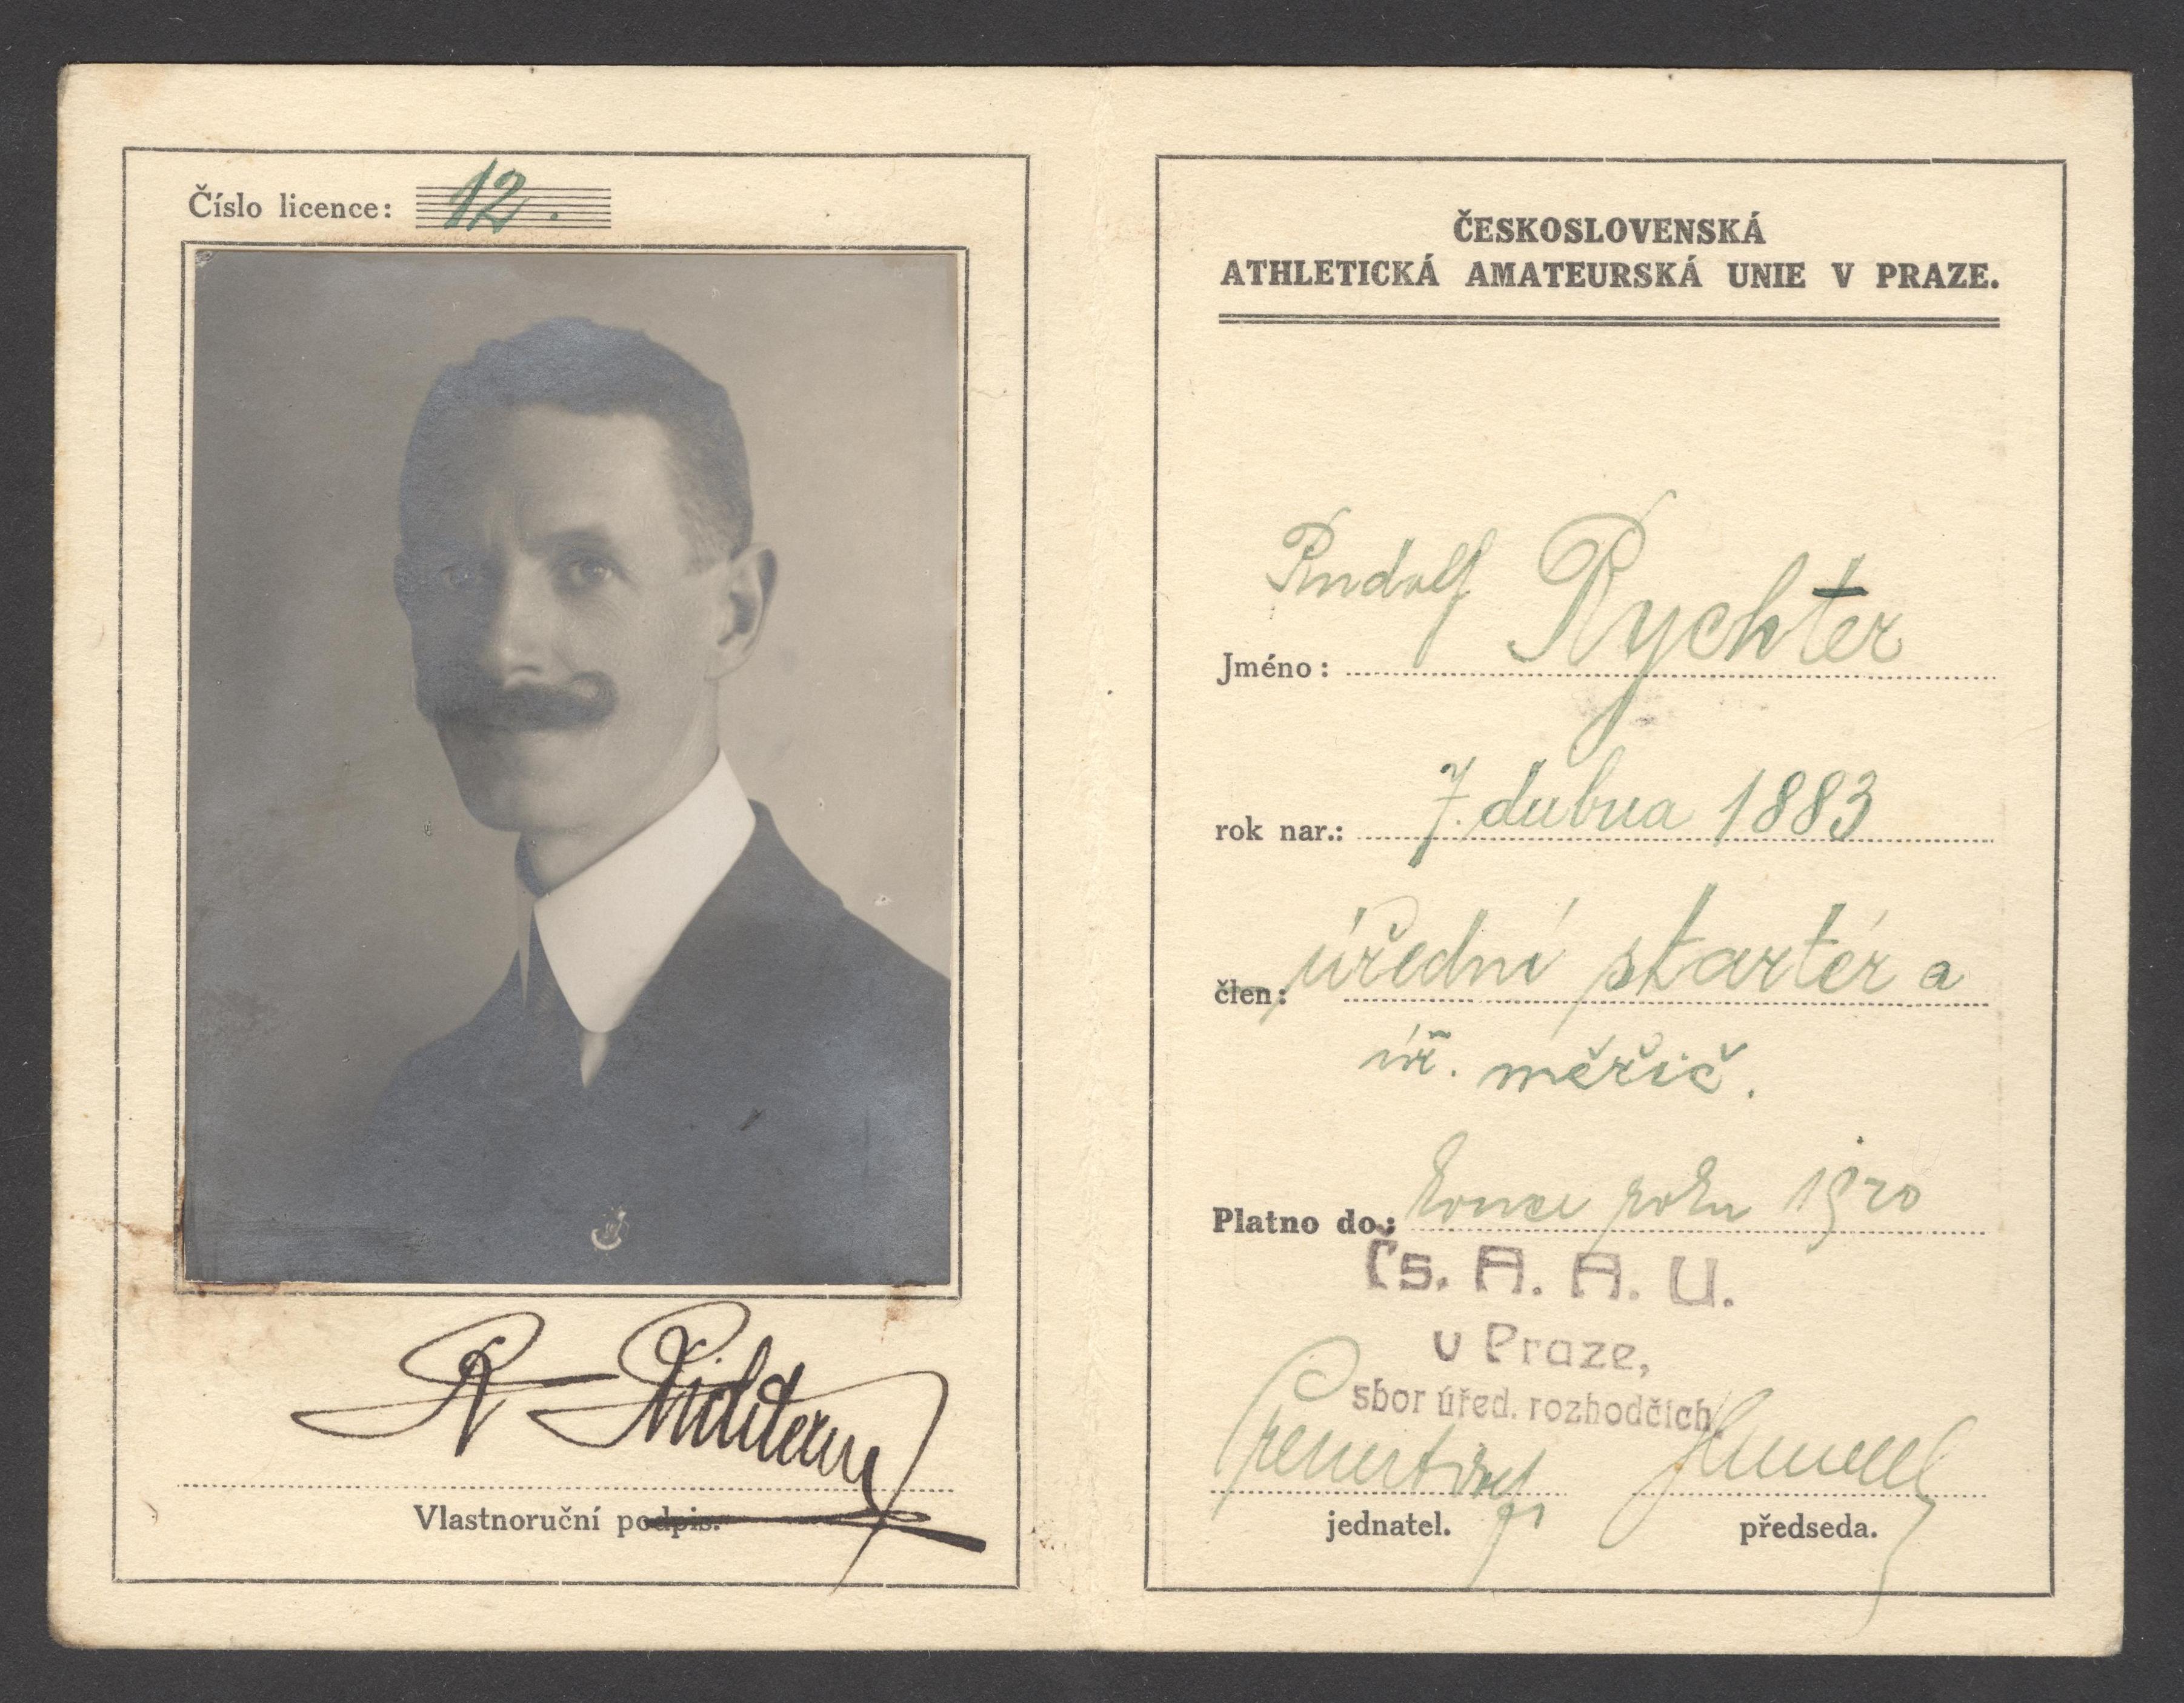 Číslo licence: 12.
R. Richter
Vlastnoruční podpis.
ČESKOSLOVENSKÁ
ATHLETICKÁ AMATEURSKÁ UNIE V PRAZE.
Rudolf Rychter
Jméno:
rok nar.: 7. dubna 1883
člen: úřední startér a
úř. měřič.
Platno do: konce roku 1920
Čs. A. A. U.
v Praze,
sbor úřed. rozhodčích.
jednatel. předseda.